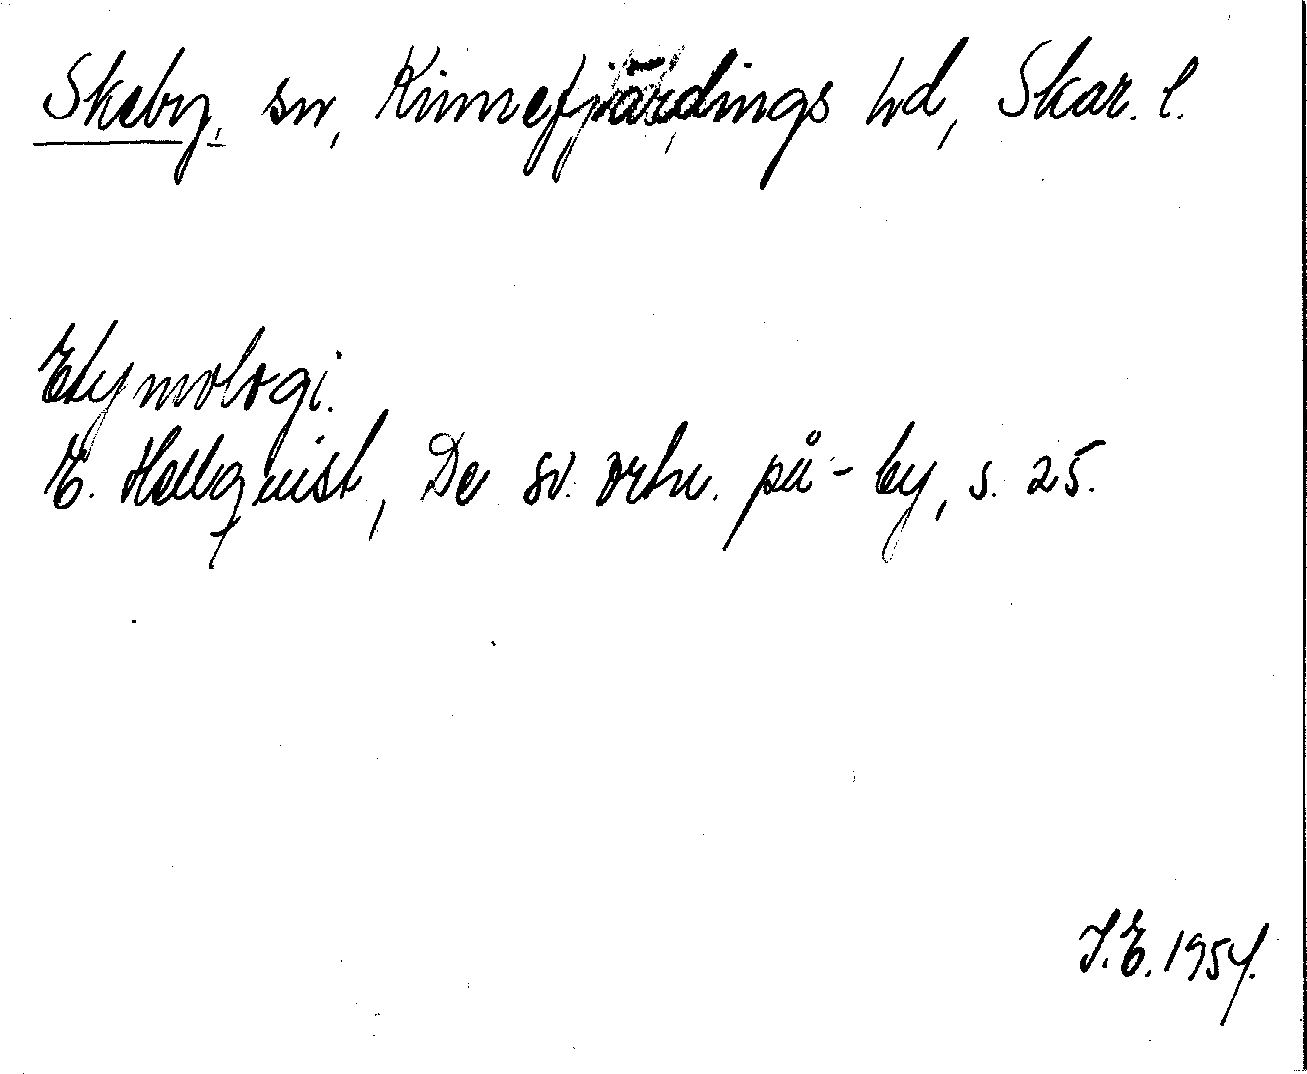 Skeby, sn, Kinnefjärdings hd, Skar. l.
Etymologi.
E. Hellquist, De sv. ortn. på -by, s. 25.
I.E. 1954.